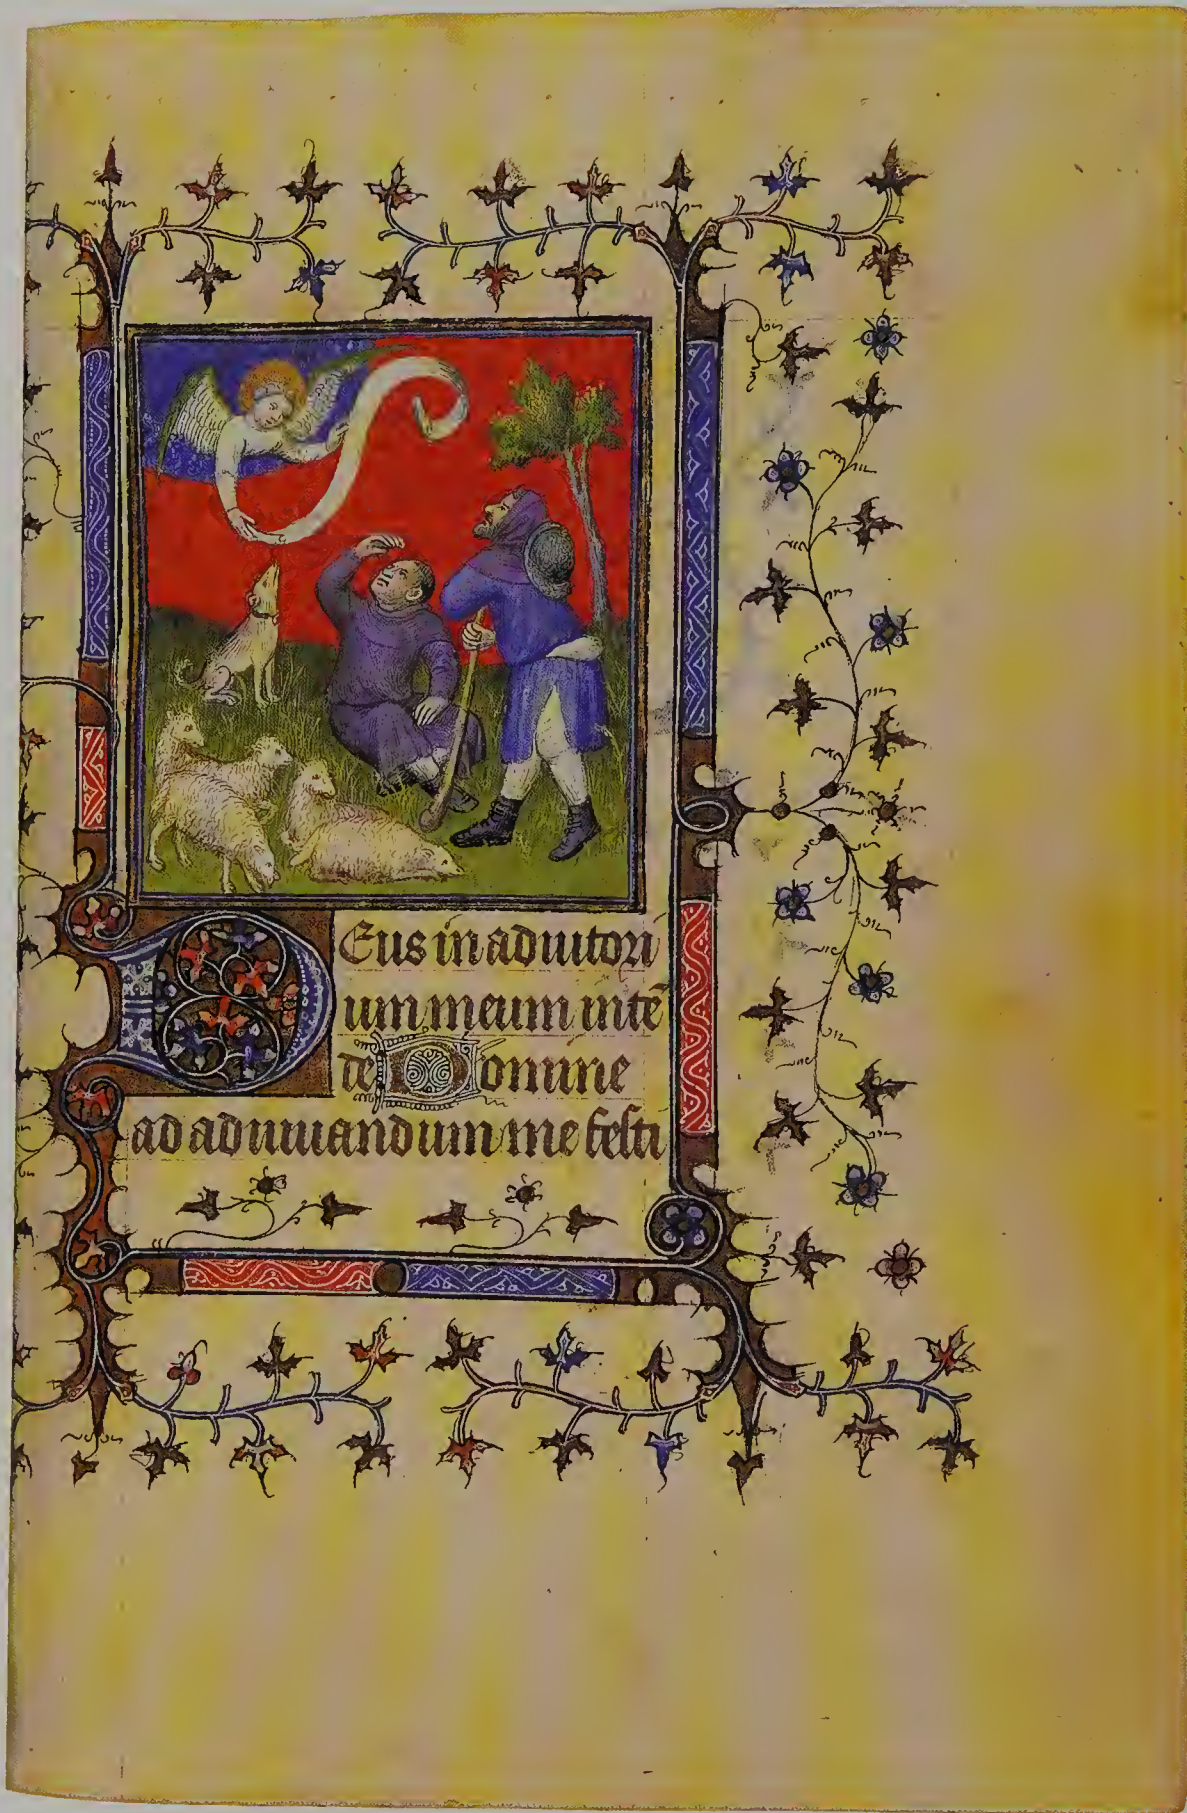 Deus in adiutori
um meum inte᷒n
de Domine
ad adiuuandum me festi